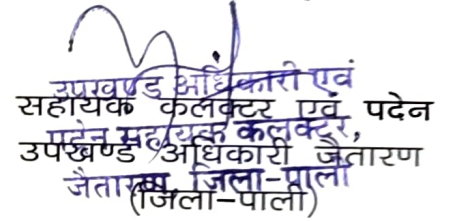 उपखण्ड अधिकारी एवं
सहायक कलक्टर एवं पदेन
पदेन सहायक कलक्टर,
उपखण्ड अधिकारी जैतारण
जैतारण, जिला-पाली
(जिला-पाली)